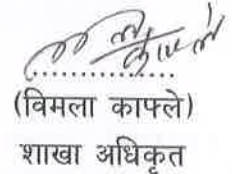 ...............
(विमला काफ्ले)
शाखा अधिकृत